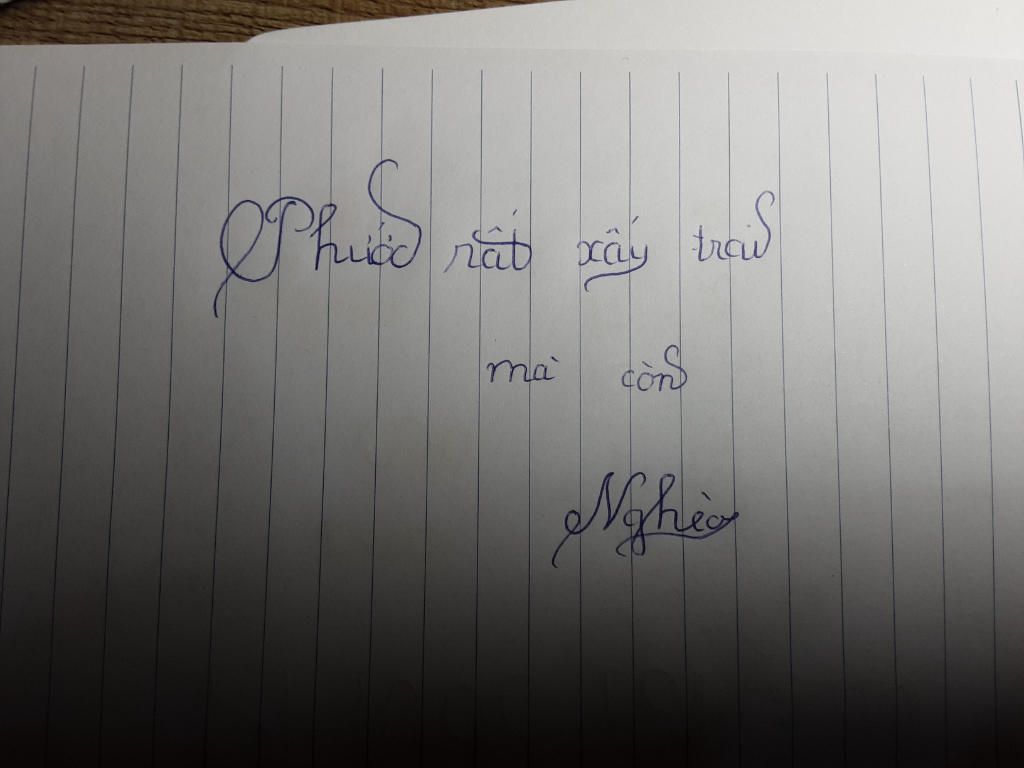 Phước rất xấy trai
mà còn
Nghèo